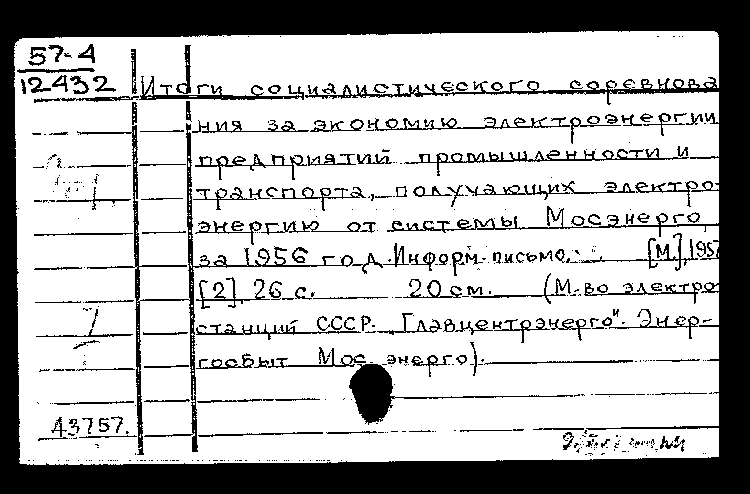 57-4
12432
Итоги социалистического соревнова
ния за экономию электроэнергии
предприятий промышленности и
транспорта, получающих электро-
энергию от системы Мосэнерго
за 1956 год. Информ. письмо. [М.], 1957
[2], 26 с. 20 см. (М-во электро-
станций СССР. „Главцентрэнерго". Энер-
госбыт Мосэнерго).
43757.